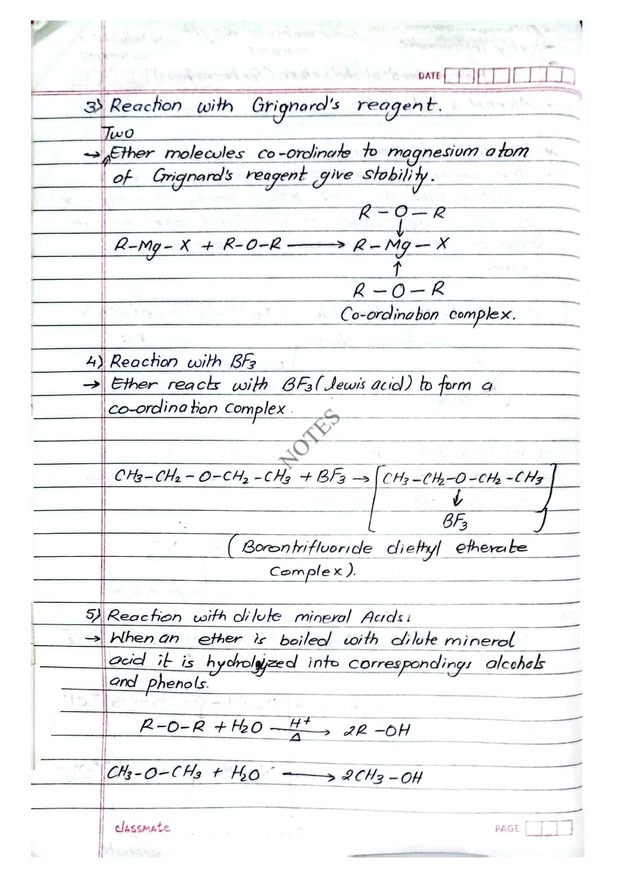 DATE
3) Reaction with Grignard's reagent.
Two
→ Ether molecules co-ordinate to magnesium atom
of Grignard's reagent give stability.
R-O-R
↓
R-Mg-X + R-O-R ⟶ R-Mg-X
↑
R-O-R
Co-ordination complex.
4) Reaction with BF3
→ Ether reacts with BF3 (lewis acid) to form a
co-ordination complex.
NOTES
CH3-CH2-O-CH2-CH3 + BF3 → [CH3-CH2-O-CH2-CH3]
↓
BF3
(Borontrifluoride diethyl etherate
complex).
5) Reaction with dilute mineral Acids:
→ When an ether is boiled with dilute mineral
acid it is hydrolyzed into correspondings alcohols
and phenols.
R-O-R + H2O —H+/Δ→ 2R-OH
CH3-O-CH3 + H2O ⟶ 2CH3-OH
classmate PAGE